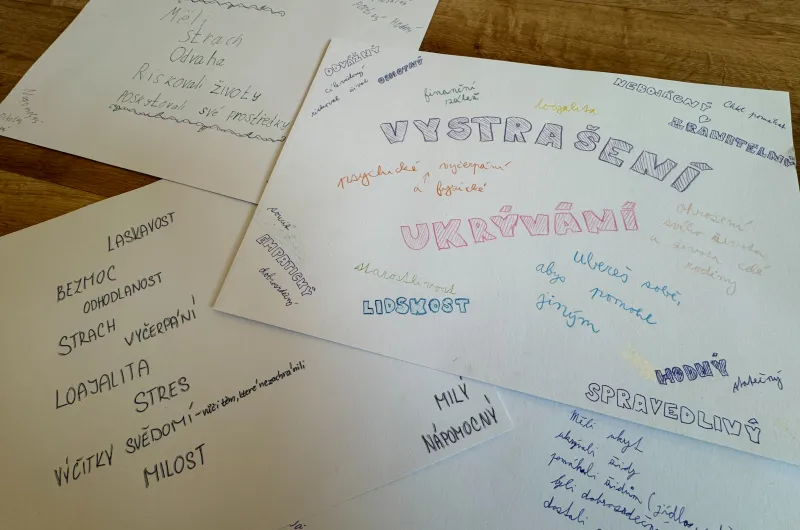 Měli
Strach
Odvaha
Riskovali životy
Poskytovali své prostředky
ODVÁŽNÝ
OCHOTNÝ
finanční
zátěž
loajalita
NEBOJÁCNÝ
ZRANITELNÝ
VYSTRAŠENÍ
psychické vyčerpání
a fyzické
UKRÝVÁNÍ
ohrožení
svého života
a života celé
rodiny
soucit
EMPATICKÝ
dobrosrdečný
starostlivost
LIDSKOST
ubereš sobě,
abys pomohl
jiným
HODNÝ
statečný
SPRAVEDLIVÝ
LASKAVOST
BEZMOC
ODHODLANOST
STRACH
VYČERPÁNÍ
LOAJALITA
STRES
VÝČITKY SVĚDOMÍ - vůči těm, které nezachránili
MILOST
MILÝ
NÁPOMOCNÝ
Měli úkryt
ukrývali židy
pomáhali židům (jídlo
byli dobrosrdeční
dostali